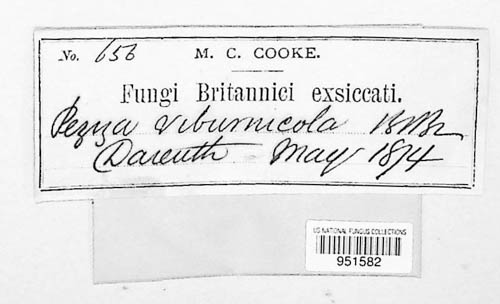 No. 656 M. C. COOKE.
Fungi Britannici exsiccati.
Peziza viburnicola B&Br
Darenth May 1874
US NATIONAL FUNGUS COLLECTIONS
951582